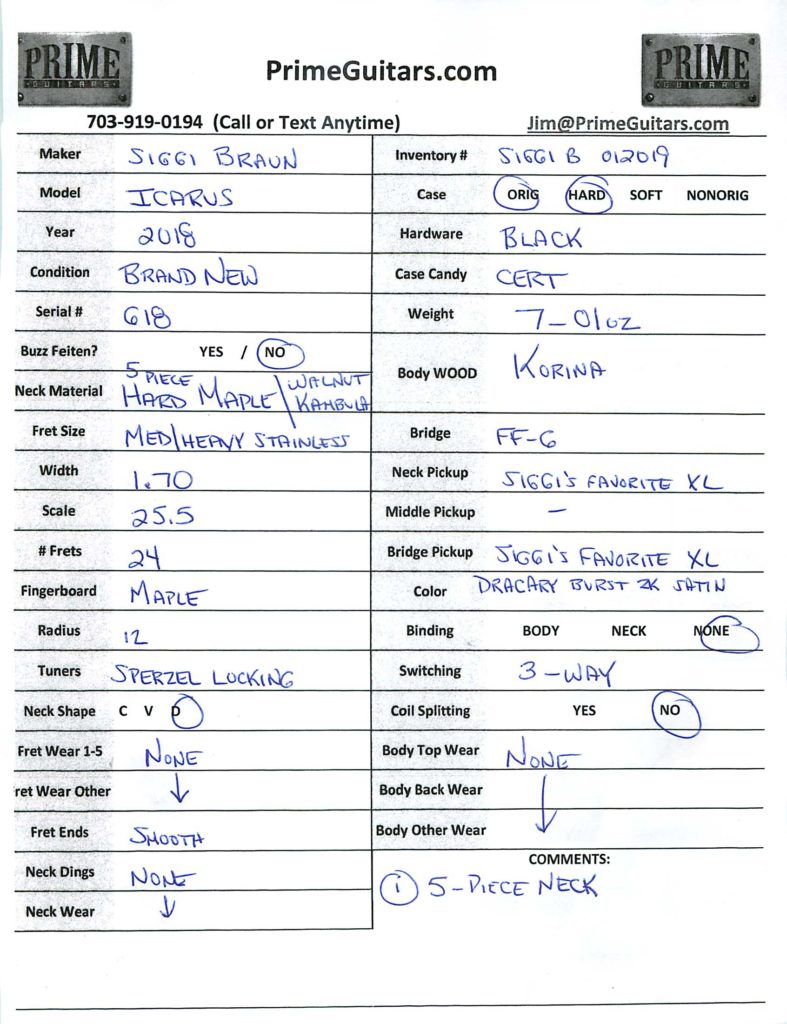 PRIME
GUITARS
PrimeGuitars.com
PRIME
GUITARS
703-919-0194 (Call or Text Anytime)
Jim@PrimeGuitars.com
Maker SIGGI BRAUN
Model ICARUS
Year 2018
Condition BRAND NEW
Serial # 618
Buzz Feiten? YES / NO
Neck Material 5 PIECE HARD MAPLE \ WALNUT KAMBULA
Fret Size MED/HEAVY STAINLESS
Width 1.70
Scale 25.5
# Frets 24
Fingerboard MAPLE
Radius 12
Tuners SPERZEL LOCKING
Neck Shape C V D
Fret Wear 1-5 NONE
ret Wear Other ↓
Fret Ends SMOOTH
Neck Dings NONE
Neck Wear ↓
Inventory # SIGGI B 012019
Case ORIG HARD SOFT NONORIG
Hardware BLACK
Case Candy CERT
Weight 7-01oz
Body WOOD KORINA
Bridge FF-6
Neck Pickup SIGGI'S FAVORITE XL
Middle Pickup –
Bridge Pickup SIGGI'S FAVORITE XL
Color DRACARY BURST 2K SATIN
Binding BODY NECK NONE
Switching 3-WAY
Coil Splitting YES NO
Body Top Wear NONE
Body Back Wear ↓
Body Other Wear
COMMENTS:
① 5-PIECE NECK